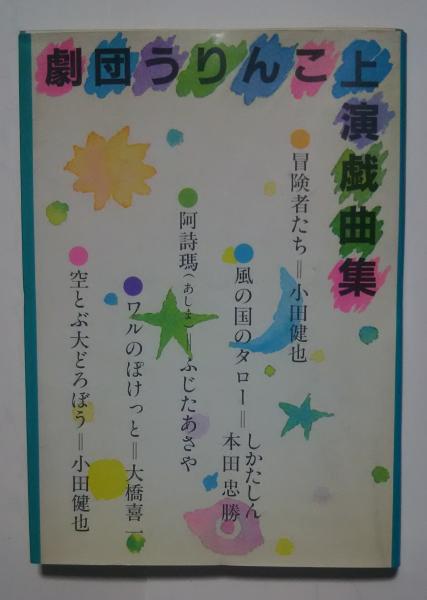 劇団うりんこ上演戯曲集
冒険者たち＝小田健也
風の国のタロー＝しかたしん
本田忠勝
阿詩瑪（あしま）＝ふじたあさや
ワルのぽけっと＝大橋喜一
空とぶ大どろぼう＝小田健也